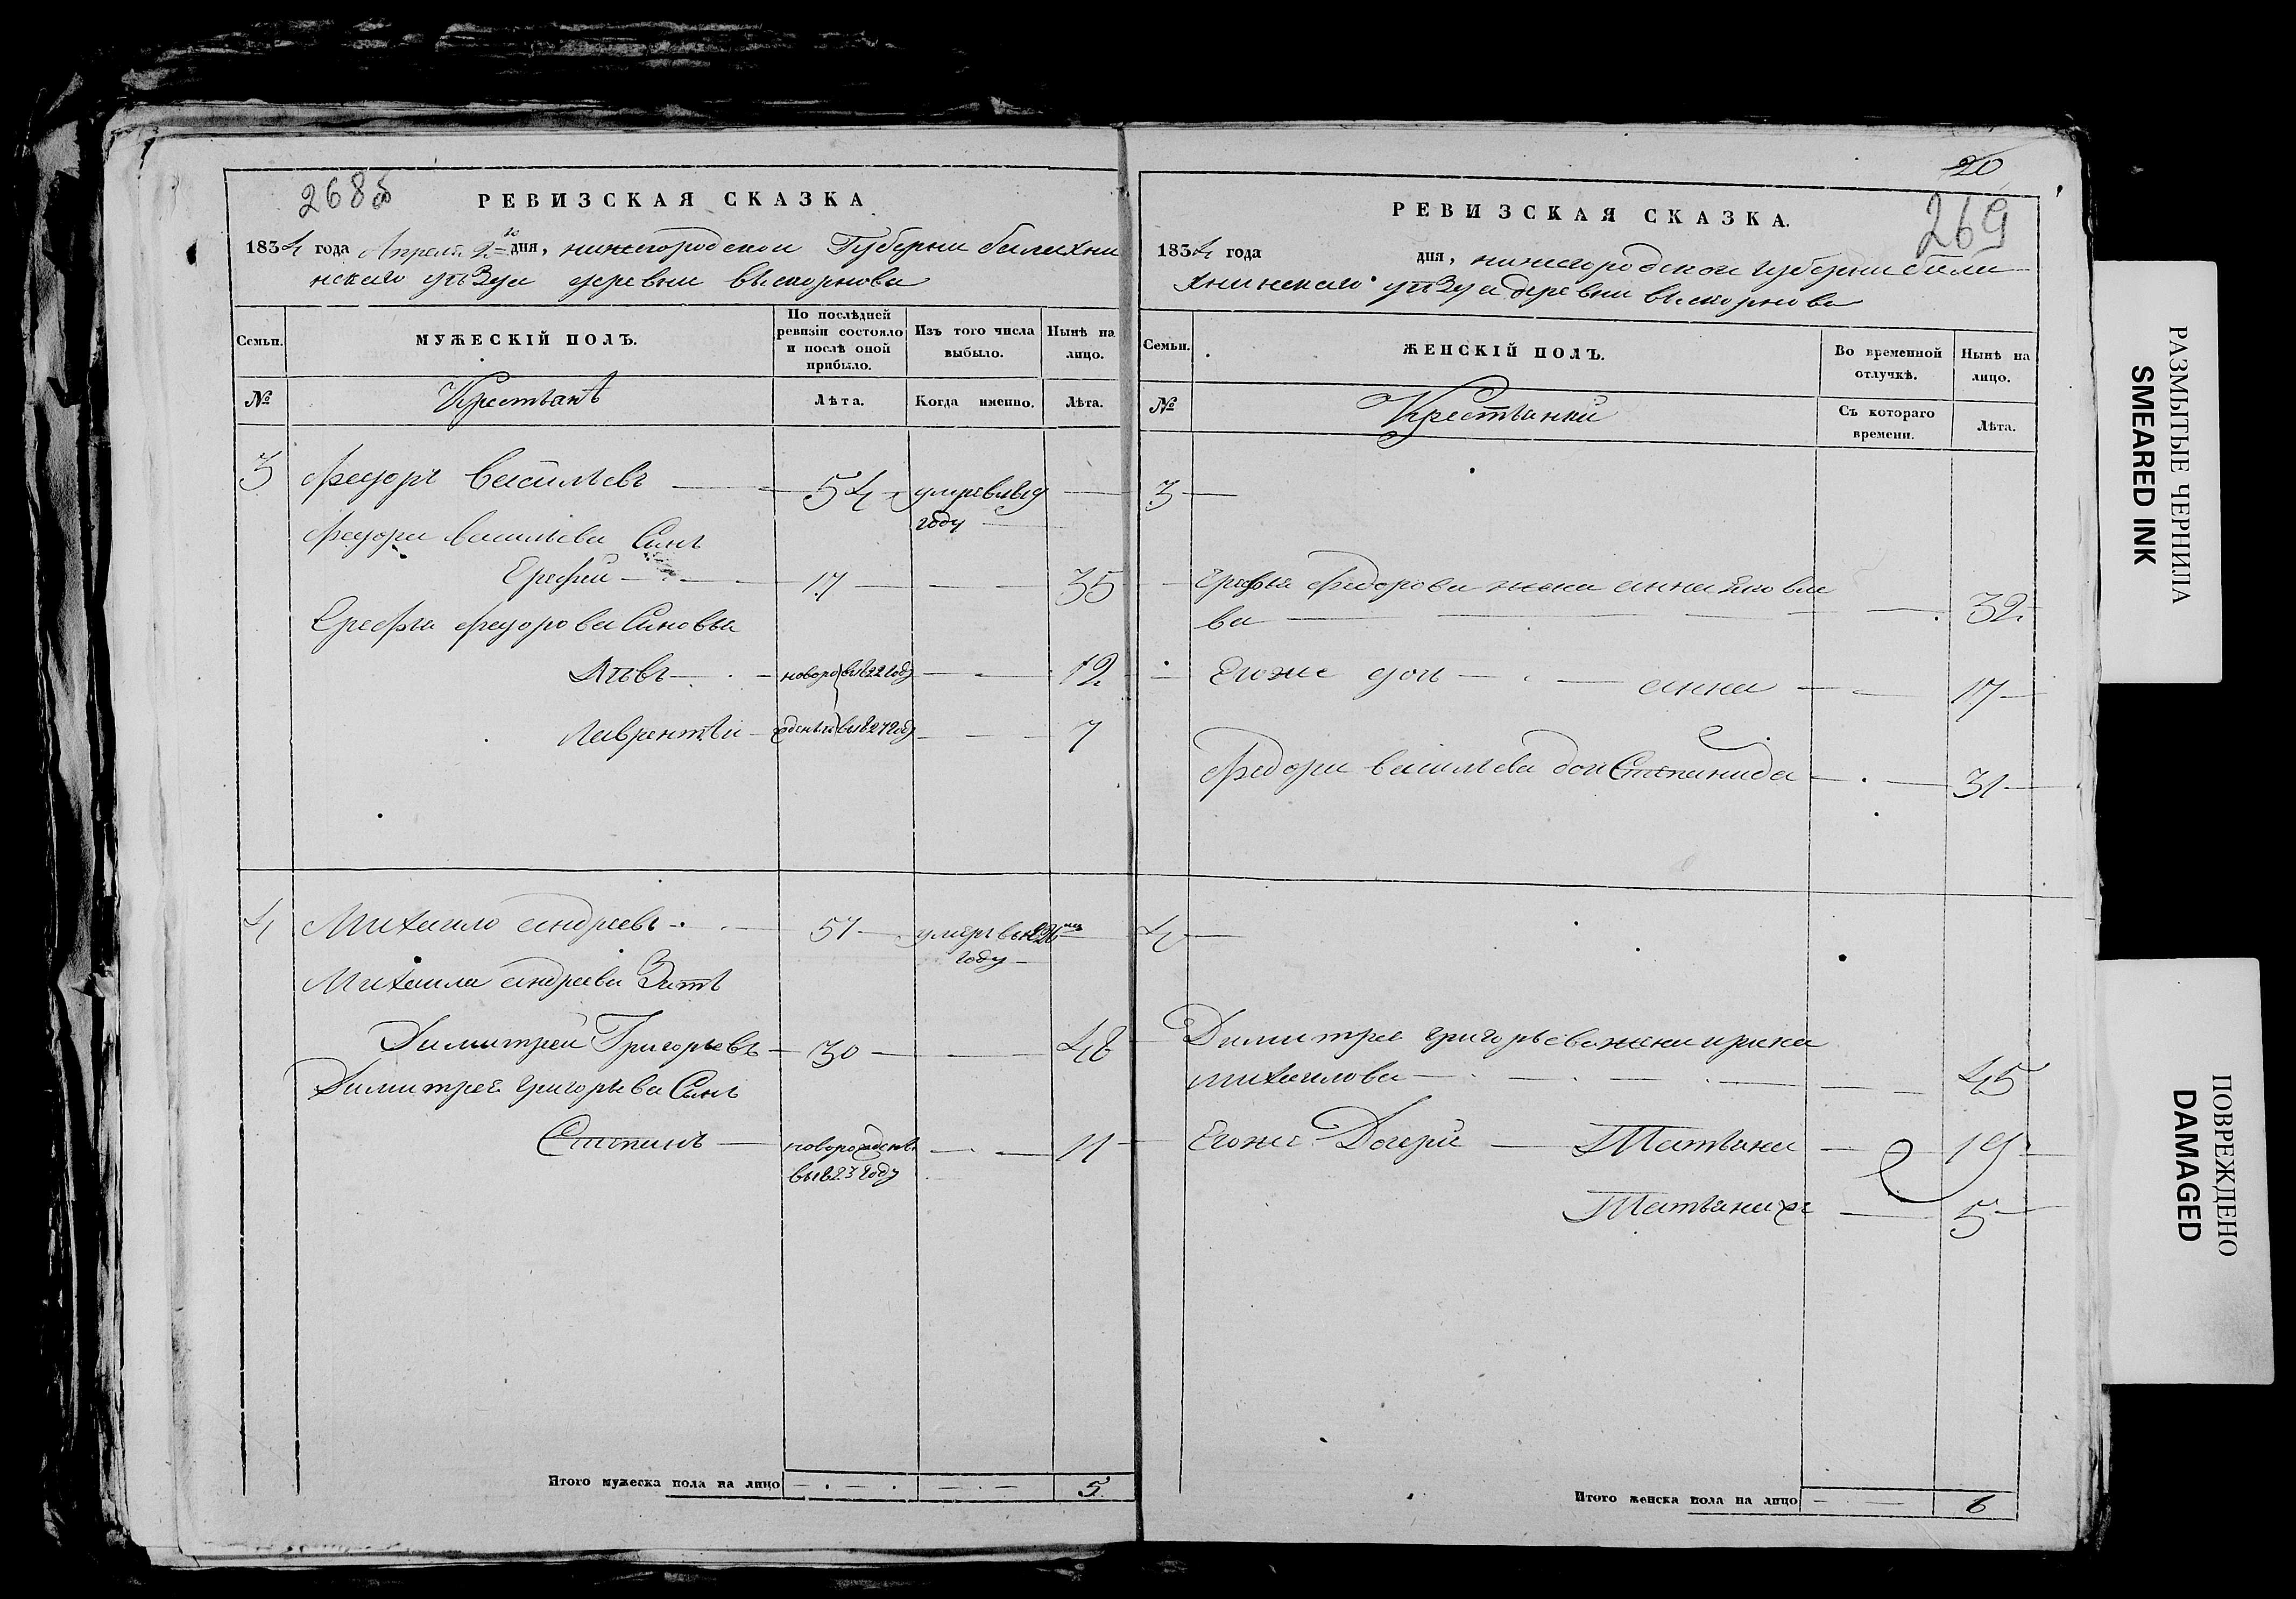 268об
РЕВИЗСКАЯ СКАЗКА
1834 года Апреля 2го дня, нижегородской Губернии балахни
нскаго уѣзда деревни выскорнова
Семьи.
МУЖЕСКІЙ ПОЛЪ.
По послѣдней ревизіи состояло и послѣ оной прибыло.
Изъ того числа выбыло.
Нынѣ на лицо.
№
Крестьянѣ
Лѣта.
Когда именно.
Лѣта.
3 Федоръ Васильевъ 54 умре в 1819
году
Федора Васильева Сынъ
Ерефей 17 35
Ерефея федорова Сыновья
Львъ новоро вы822 году 12
Лаврентѣй жденыя вы827 году 7
4 Михаило андреевъ 51 умеръ вы826мъ
году
Михаила андреева Зять
Димитрей Григорьевъ 30 48
Димитрея григорьева Сынъ
Степанъ новорожденъ 11
вы823 году
Итого мужеска пола на лицо 5
20
269
РЕВИЗСКАЯ СКАЗКА.
1834 года дня, нижегородской губернии бала
хнинскаго уѣзда деревни выскорнова
Семьи.
ЖЕНСКІЙ ПОЛЪ.
Во временной отлучкѣ.
Нынѣ на лицо.
№
Крестьянки
Съ котораго времени.
Лѣта.
3
Ерефея Федорова жена анна Яковле
ва 32
Егоже дочь анна 17
Федора васильева дочь Степанида 31
4
Димитрея григорьева жена ирина
михаилова 45
Егоже Дочери Татьяна 19
Татьяна же 5
Итого женска пола на лицо 6
РАЗМЫТЫЕ ЧЕРНИЛА
SMEARED INK
ПОВРЕЖДЕНО
DAMAGED